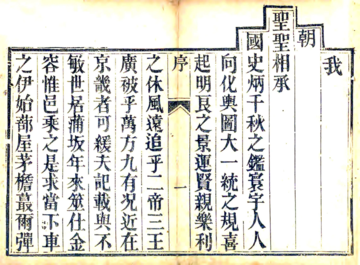 我
朝
聖聖相承
國史炳千秋之鑑寰宇人人
向化輿圖大一統之規喜
起明良之景運賢親樂利
序
一
之休風遠追乎二帝三王
廣被乎萬方九有况近在
京畿者可緩夫記載與不
敏世居蒲坂年來筮仕金
容惟邑乘之是求當下車
之伊始蔀屋茅檐蕞爾彈